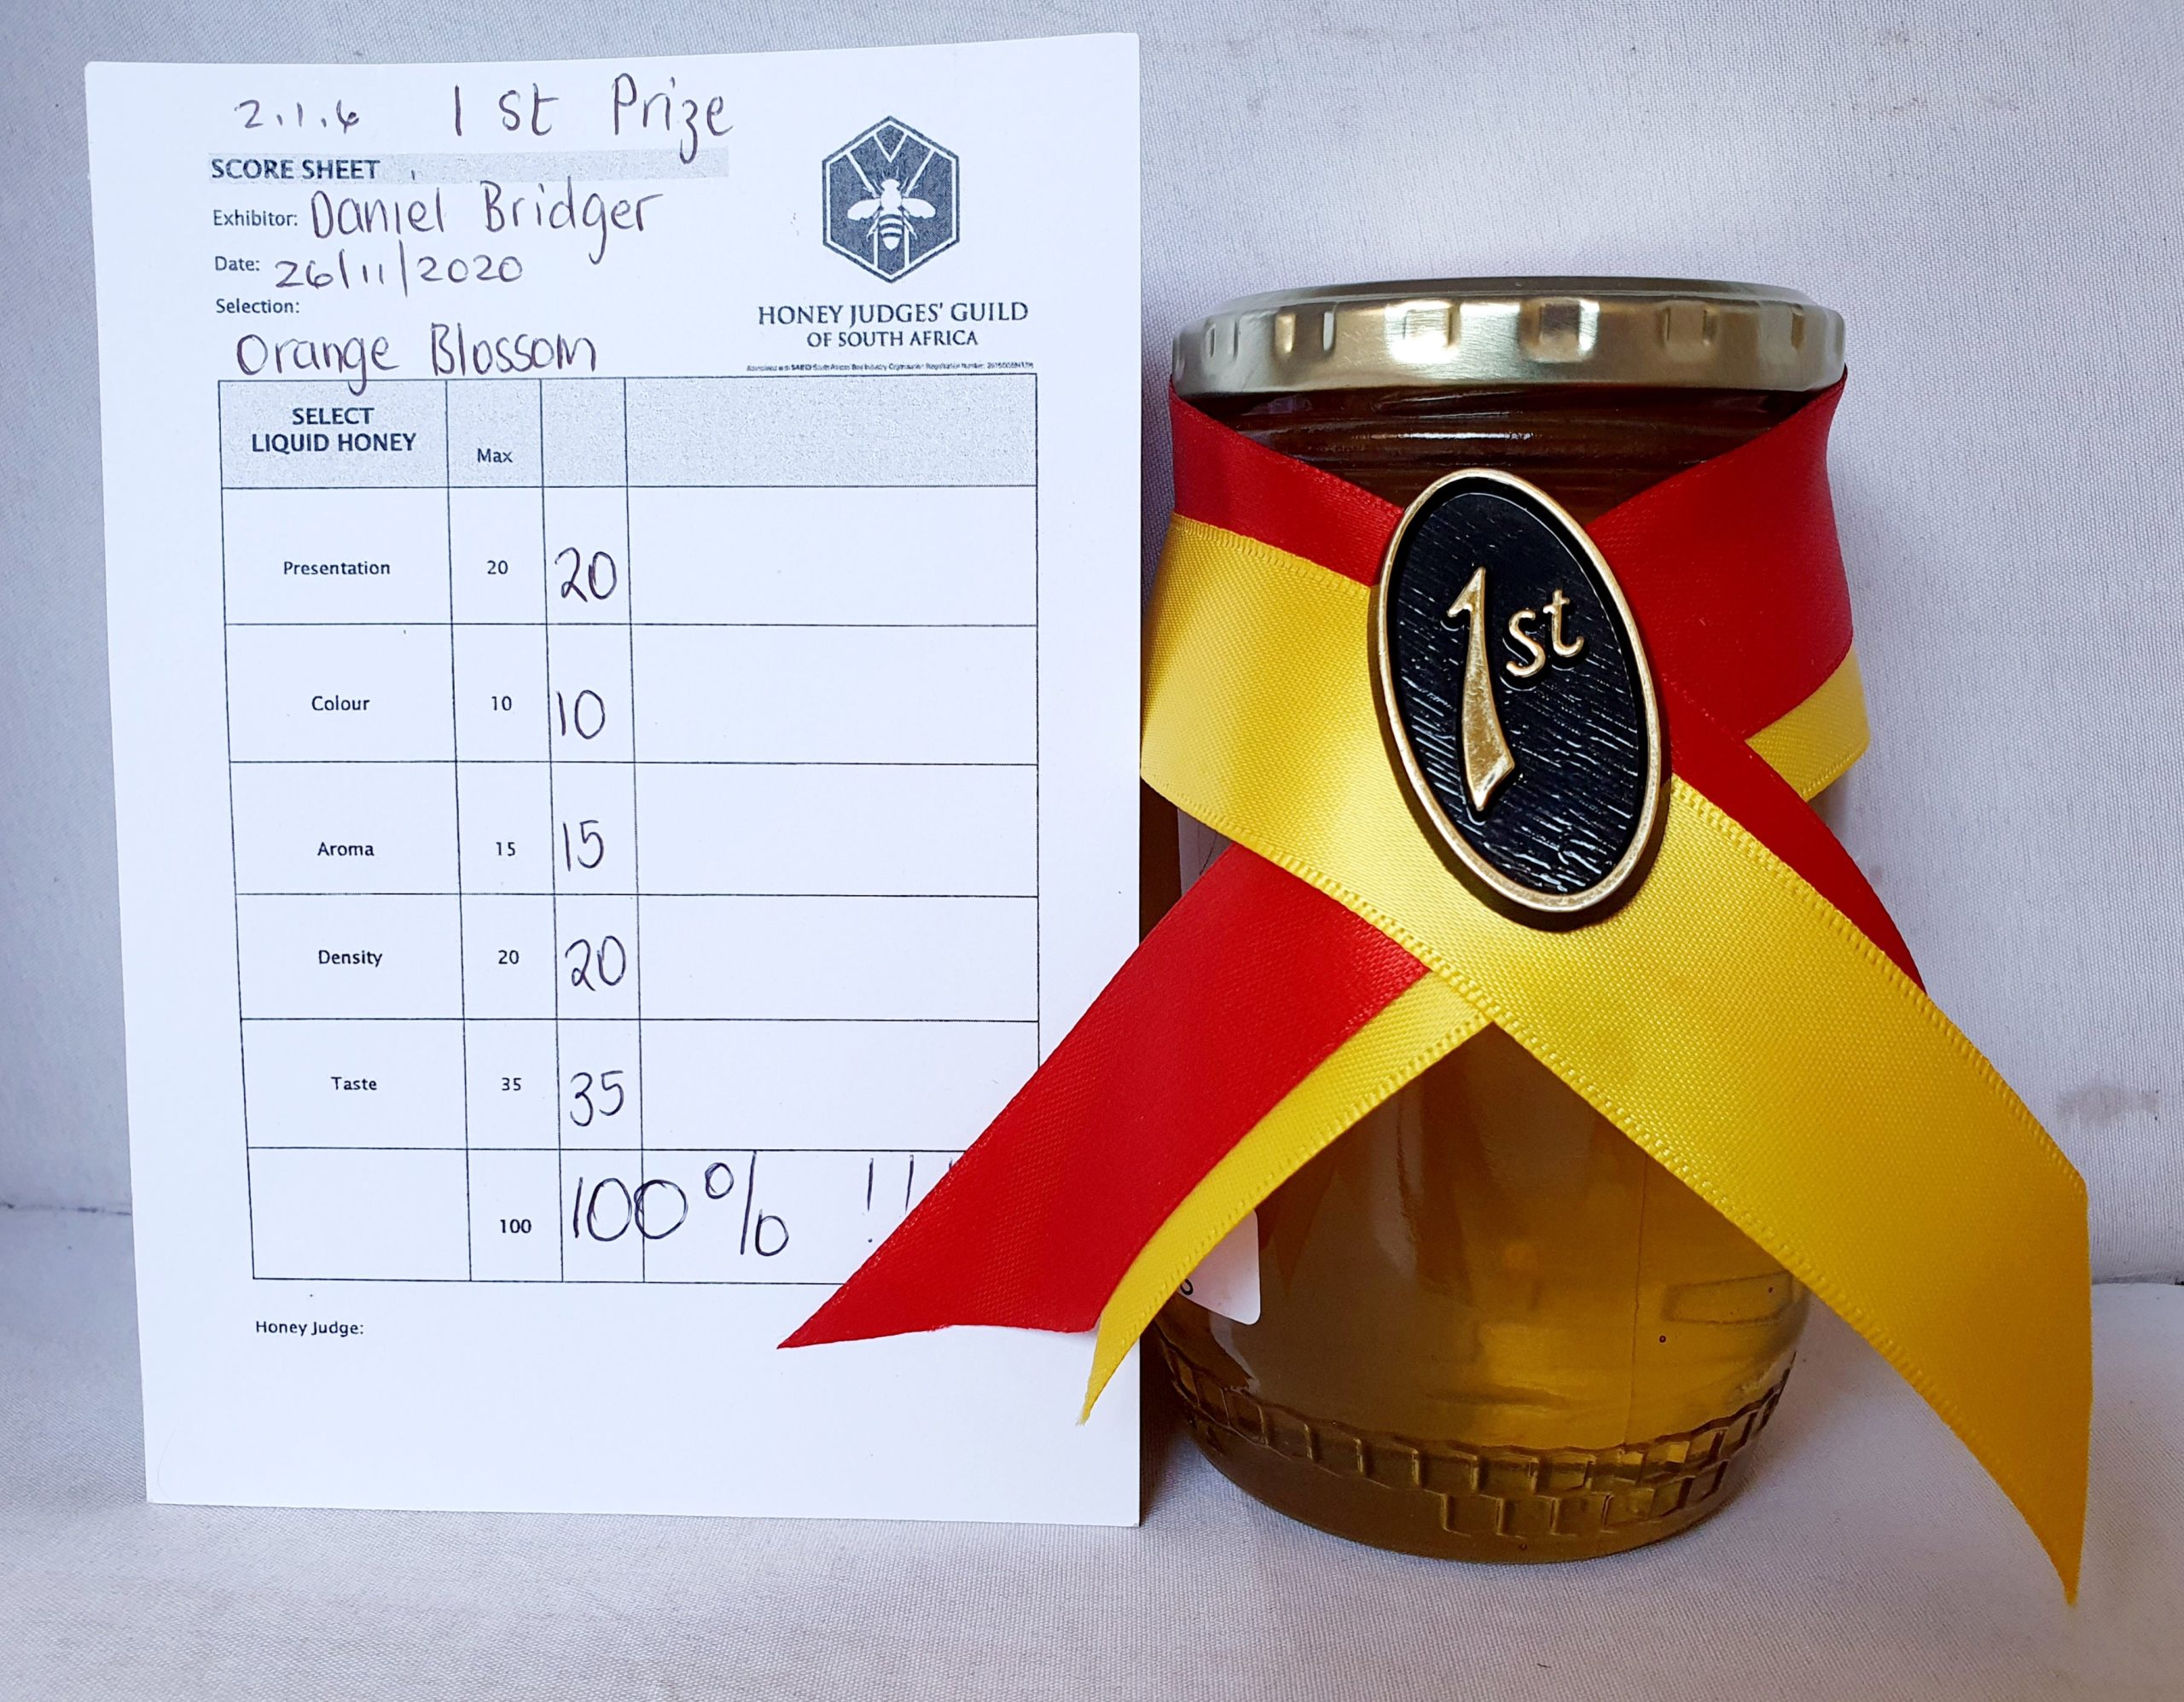 2.1.6 1st Prize
SCORE SHEET
Exhibitor: Daniel Bridger
Date: 26/11/2020
Selection:
Orange Blossom
HONEY JUDGES' GUILD
OF SOUTH AFRICA
SELECT
LIQUID HONEY
Max
Presentation 20 20
Colour 10 10
Aroma 15 15
Density 20 20
Taste 35 35
100 100% !!
Honey Judge:
1st